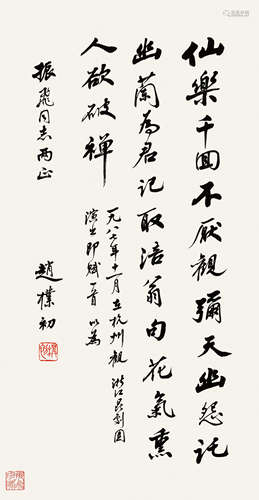 仙樂千回不厭觀彌天幽怨託
幽蘭為君記取涪翁句花氣熏
人欲破禪
一九八七年十一月在杭州觀浙江昆剧团
演出即賦一首以為
振飛同志兩正
趙樸初